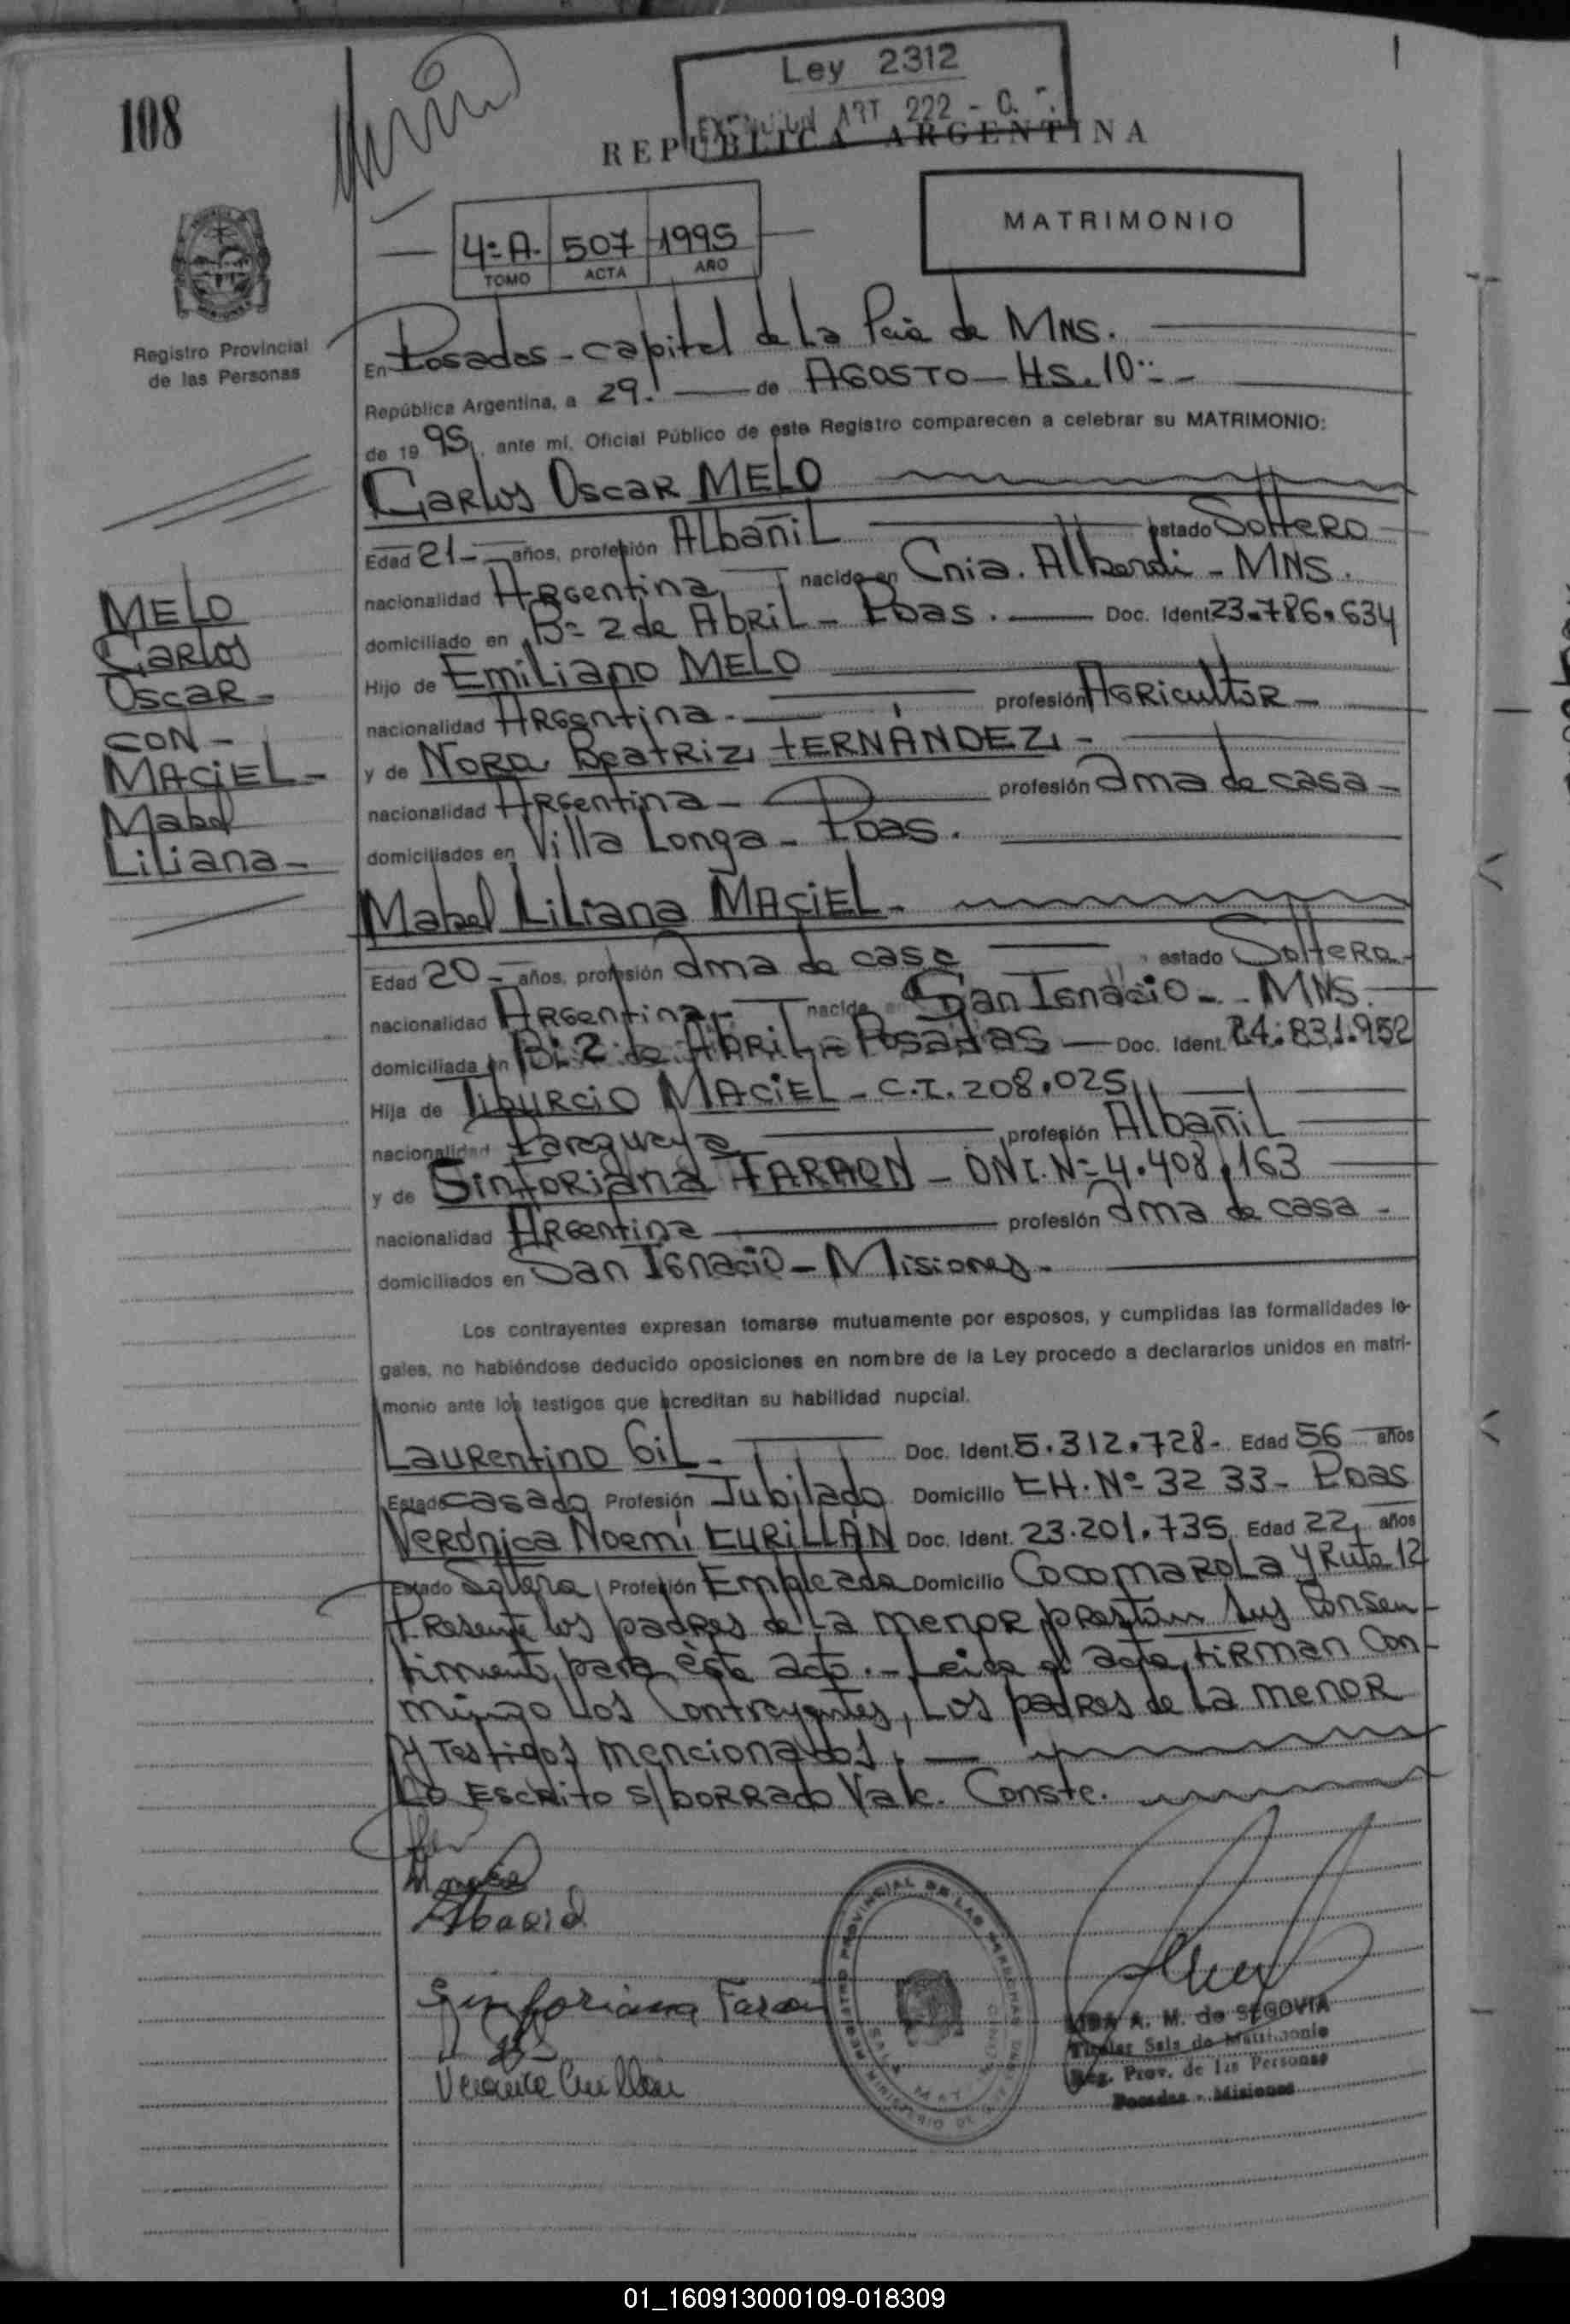 Ley 2312
ART 222 - O.
108
REPUBLICA ARGENTINA
MATRIMONIO
4º A. 507 1995
TOMO ACTA AÑO
Registro Provincial
de las Personas
En Posadas - capital de La Pcia de MNS.
República Argentina, a 29. de AGOSTO - HS. 10:-
de 19 95, ante mí, Oficial Público de este Registro comparecen a celebrar su MATRIMONIO:
Carlos Oscar MELO
Edad 21 - años, profesión Albañil estado Soltero
nacionalidad Argentina nacido en Cnia. Alberdi - MNS.
domiciliado en Bº 2 de Abril - Pdas. Doc. Ident 23.786.634
Hijo de Emiliano MELO
nacionalidad Argentina. profesión Agricultor -
y de Nora Beatriz FERNÁNDEZ -
nacionalidad Argentina - profesión Ama de casa -
domiciliados en Villa Longa - Pdas.
MELO
Carlos
Oscar -
CON -
MACIEL -
Mabel
Liliana -
Mabel Liliana MACIEL -
Edad 20 - años, profesión Ama de casa estado Soltera
nacionalidad Argentina - nacida en San Ignacio - MNS.
domiciliada en Bº 2 de Abril - Posadas - Doc. Ident. 24.831.952
Hija de Tiburcio MACIEL - C.I. 208.025
nacionalidad Paraguaya profesión Albañil
y de Sinforiana FARAON - DNI. Nº 4.408.163
nacionalidad Argentina profesión Ama de casa -
domiciliados en San Ignacio - Misiones -
Los contrayentes expresan tomarse mutuamente por esposos, y cumplidas las formalidades le-
gales, no habiéndose deducido oposiciones en nombre de la Ley procedo a declararlos unidos en matri-
monio ante los testigos que acreditan su habilidad nupcial.
Laurentino Gil - Doc. Ident. 5.312.728 - Edad 56 años
Estado casado Profesión Jubilado Domicilio CH. Nº 32 33 - Pdas
Verónica Noemi CURILLÁN Doc. Ident. 23.201.735 Edad 22 años
Estado Soltera Profesión Empleada Domicilio Cocomarola y Ruta 12
Presente los padres de La menor prestan sus Consen-
timiento para éste acto. - Leida el acta, FIRMAN Con-
migo Los Contrayentes, Los padres de La menor
y Testigos mencionados. -
Lo Escrito s/borrado Vale. Conste.
Sinforiana Faraon
Veronica Curillan
REGISTRO PROVINCIAL DE LAS PERSONAS
A. M. de SEGOVIA
Titular Sala de Matrimonio
Reg. Prov. de las Personas
Posadas - Misiones
01_160913000109-018309